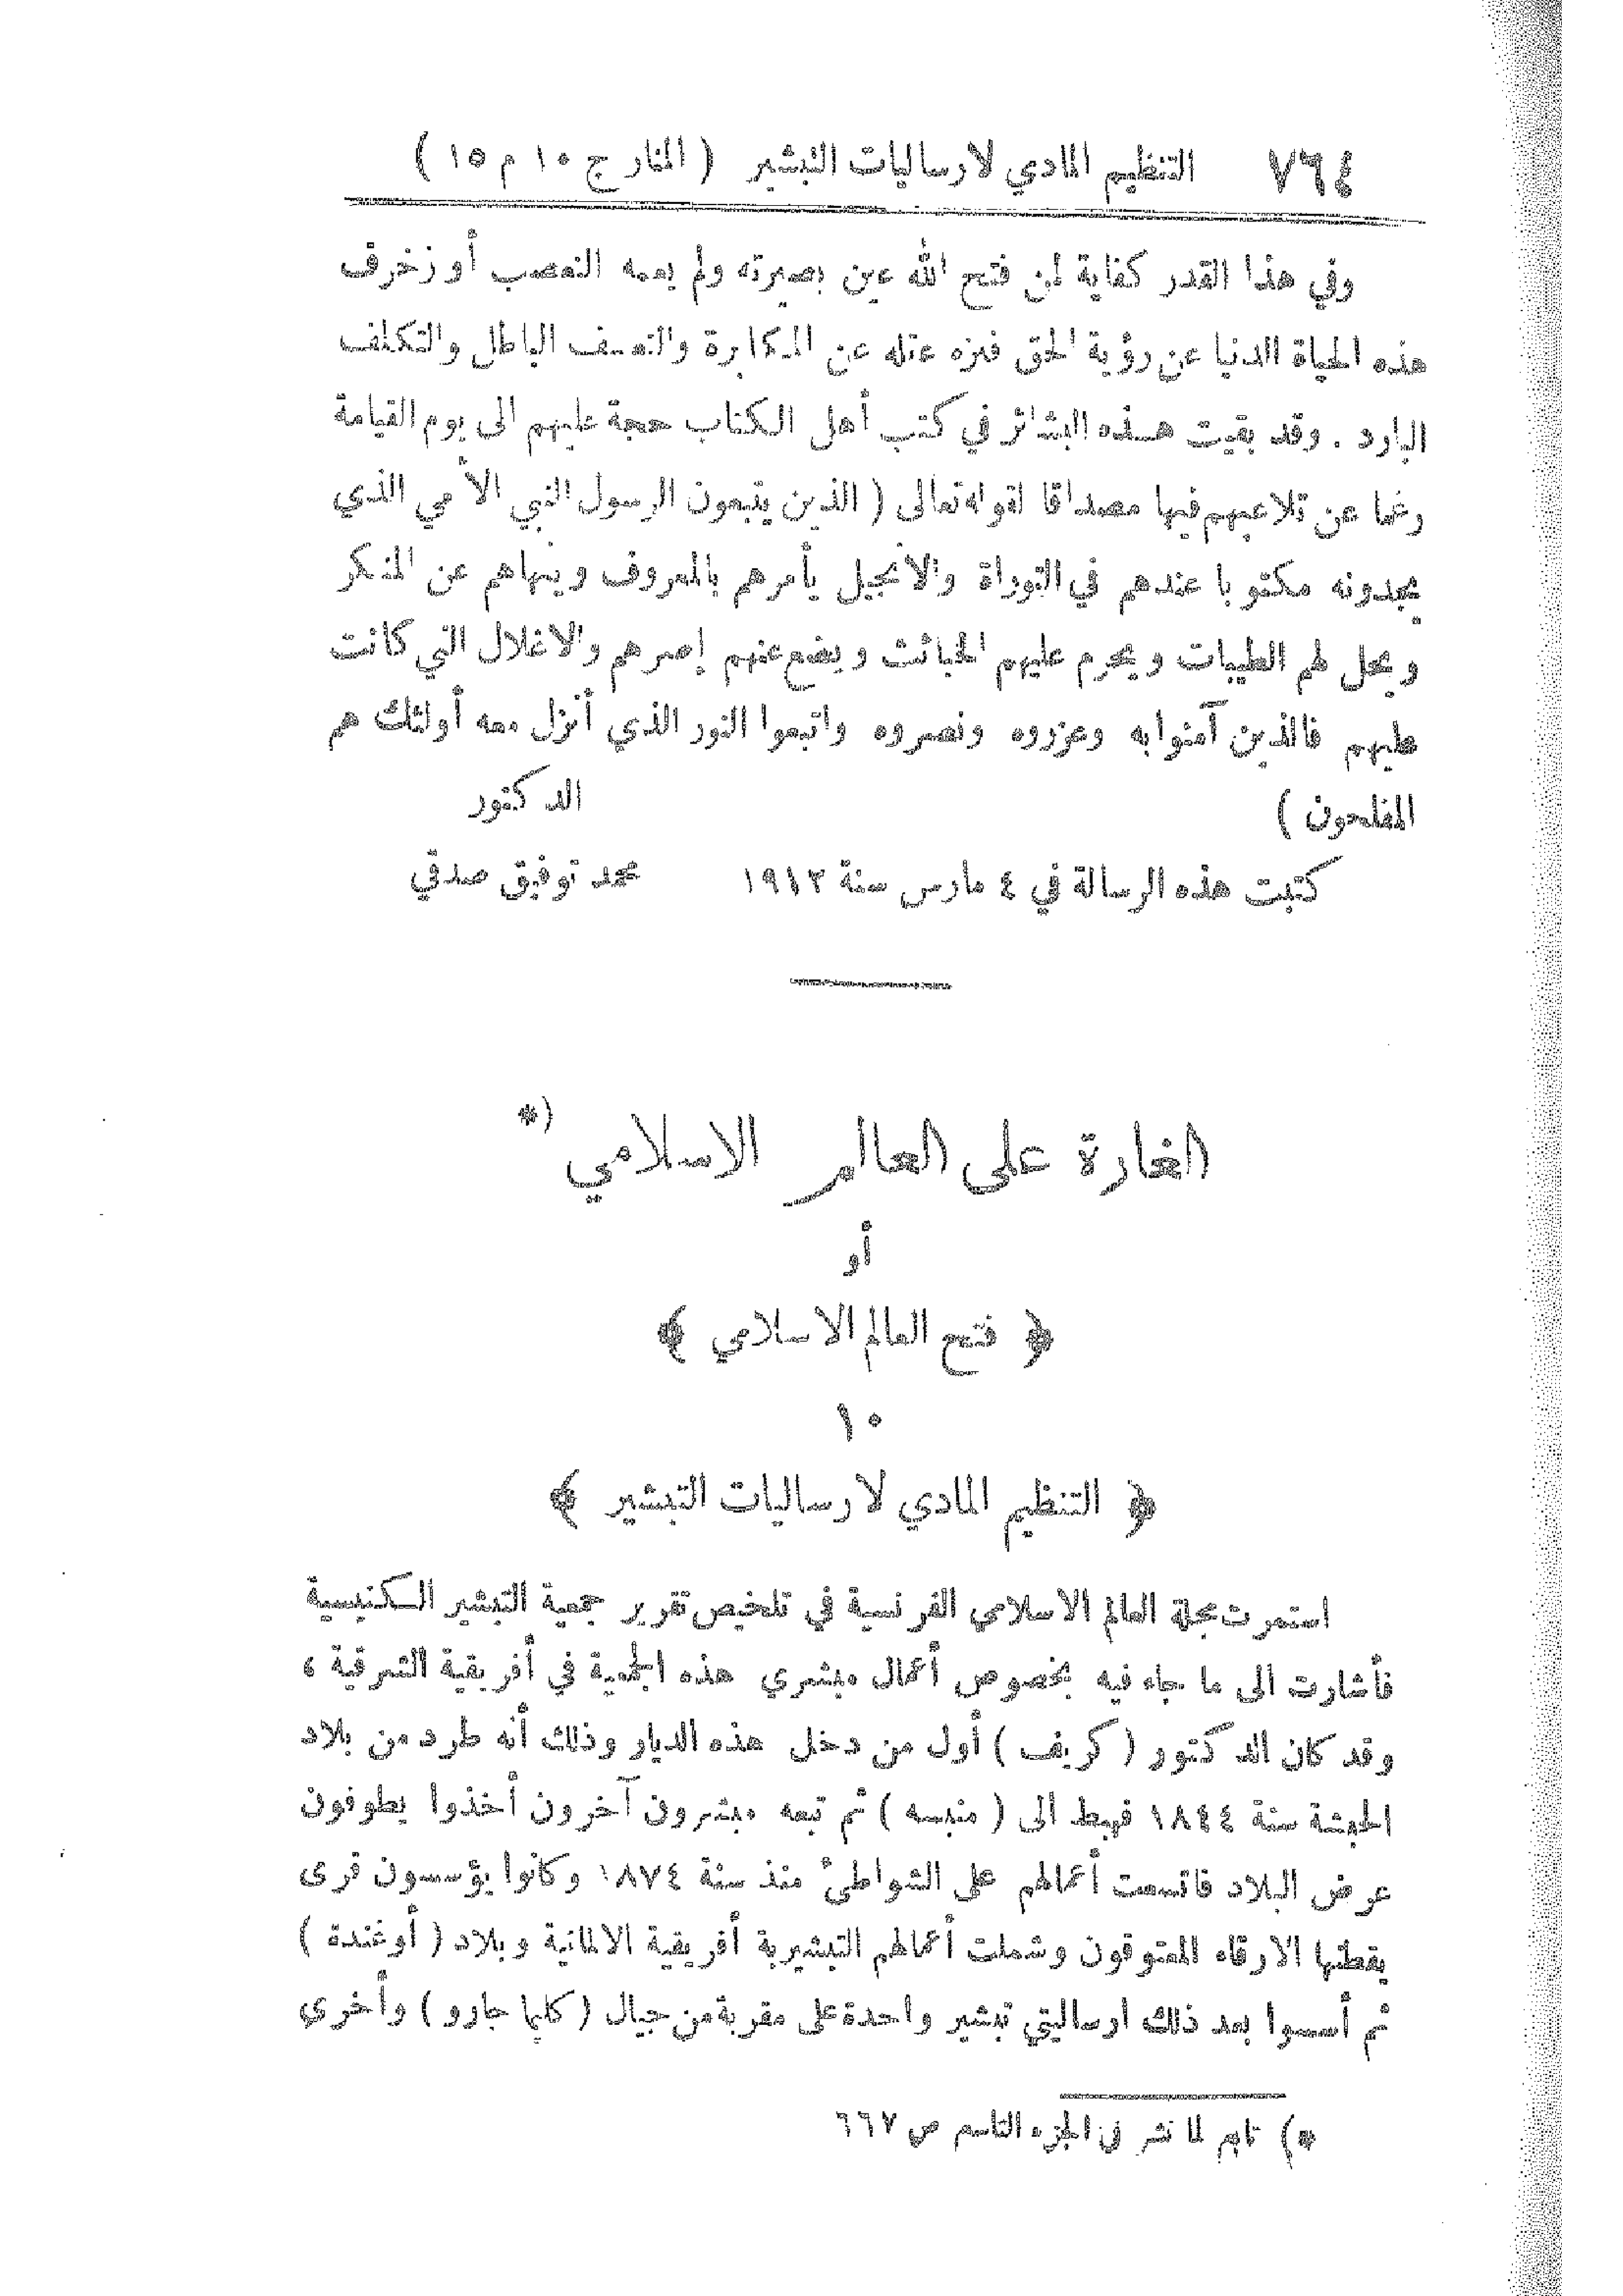 ٧٦٤ التنظيم المادي لارساليات التبشير ( المنار ج ١٠ م ١٥ )
وفي هذا القدر كفاية لمن فتح الله عين بصيرته ولم يعمه التعصب أو زخرف
هذه الحياة الدنيا عن رؤية الحق فنزه عقله عن المكابرة والتعسف الباطل والتكلف
البارد . وقد بقيت هذه البشائر في كتب أهل الكتاب حجة عليهم الى يوم القيامة
رغما عن تلاعبهم فيها مصداقا لقوله تعالى ( الذين يتبعون الرسول النبي الأمي الذي
يجدونه مكتوبا عندهم في التوراة والانجيل يأمرهم بالمعروف وينهاهم عن المنكر
ويحل لهم الطيبات ويحرم عليهم الخبائث ويضع عنهم إصرهم والاغلال التي كانت
عليهم فالذين آمنوا به وعزروه ونصروه واتبعوا النور الذي أنزل معه أولئك هم
المفلحون )
الدكتور
كتبت هذه الرسالة في ٤ مارس سنة ١٩١٢ محمد توفيق صدقي
الغارة على العالم الاسلامي *)
أو
﴿ فتح العالم الاسلامي ﴾
١٠
﴿ التنظيم المادي لارساليات التبشير ﴾
استمرت مجلة العالم الاسلامي الفرنسية في تلخيص تقرير جمعية التبشير الكنيسية
فأشارت الى ما جاء فيه بخصوص أعمال مبشري هذه الجمعية في أفريقية الشرقية ،
وقد كان الدكتور ( كريف ) أول من دخل هذه الديار وذلك أنه طرد من بلاد
الحبشة سنة ١٨٤٤ فهبط الى ( منبسه ) ثم تبعه مبشرون آخرون أخذوا يطوفون
عرض البلاد فاتسعت أعمالهم على الشواطئ منذ سنة ١٨٧٤ وكانوا يؤسسون قرى
يقطنها الارقاء المعتوقون وشملت أعمالهم التبشيرية أفريقية الالمانية وبلاد ( أوغندة )
ثم أسسوا بعد ذلك ارساليتي تبشير واحدة على مقربة من جبال ( كليما جارو ) وأخرى
*) تابع لما نشر في الجزء التاسع ص ٦٦٧